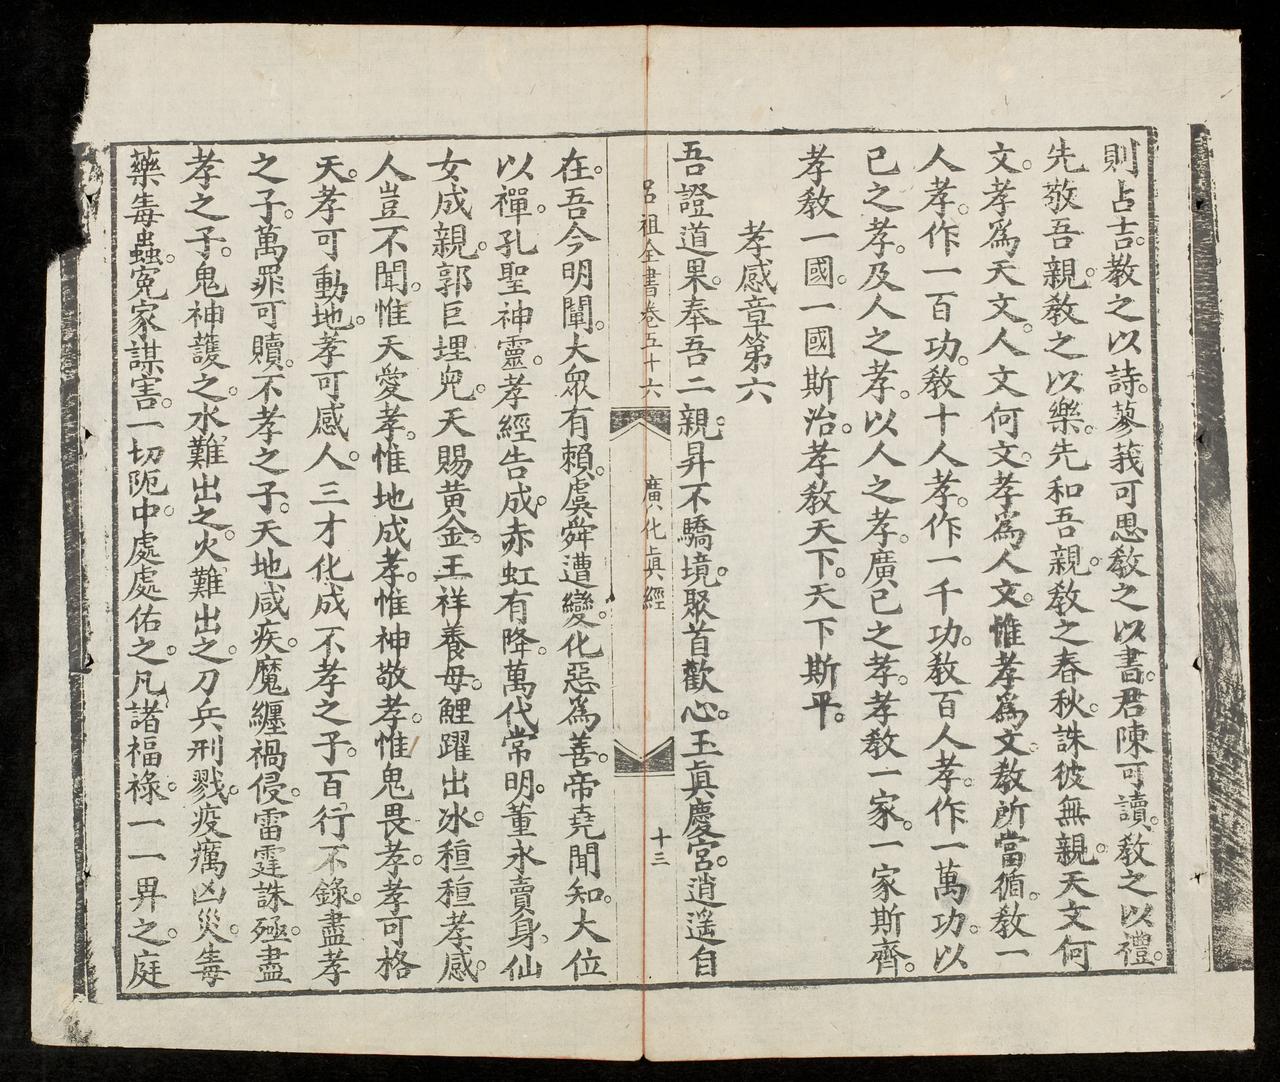 則占吉。教之以詩。蓼莪可思。教之以書。君陳可讀。教之以禮。
先敬吾親。教之以樂。先和吾親。教之春秋。誅彼無親。天文何
文。孝爲天文。人文何文。孝爲人文。惟孝爲文。教所當循。教一
人孝。作一百功。教十人孝。作一千功。教百人孝。作一萬功。以
己之孝。及人之孝。以人之孝。廣己之孝。孝教一家。一家斯齊。
孝教一國。一國斯治。孝教天下。天下斯平。
孝感章第六
吾證道果。奉吾二親。昇不驕境。聚首歡心。玉眞慶宮。逍遥自
呂祖全書卷五十六 廣化眞經 十三
在。吾今明闡。大衆有賴。虞舜遭變。化惡爲善。帝堯聞知。大位
以禪。孔聖神靈。孝經告成。赤虹有降。萬代常明。董永賣身。仙
女成親。郭巨埋兒。天賜黄金。王祥養母。鯉躍出冰。種種孝感。
人豈不聞。惟天愛孝。惟地成孝。惟神敬孝。惟鬼畏孝。孝可格
天。孝可動地。孝可感人。三才化成。不孝之子。百行不錄。盡孝
之子。萬罪可贖。不孝之子。天地咸疾。魔纏禍侵。雷霆誅殛。盡
孝之子。鬼神護之。水難出之。火難出之。刀兵刑戮。疫癘凶災。毒
藥毒蟲。冤家謀害。一切阨中。處處佑之。凡諸福祿。一一畀之。庭